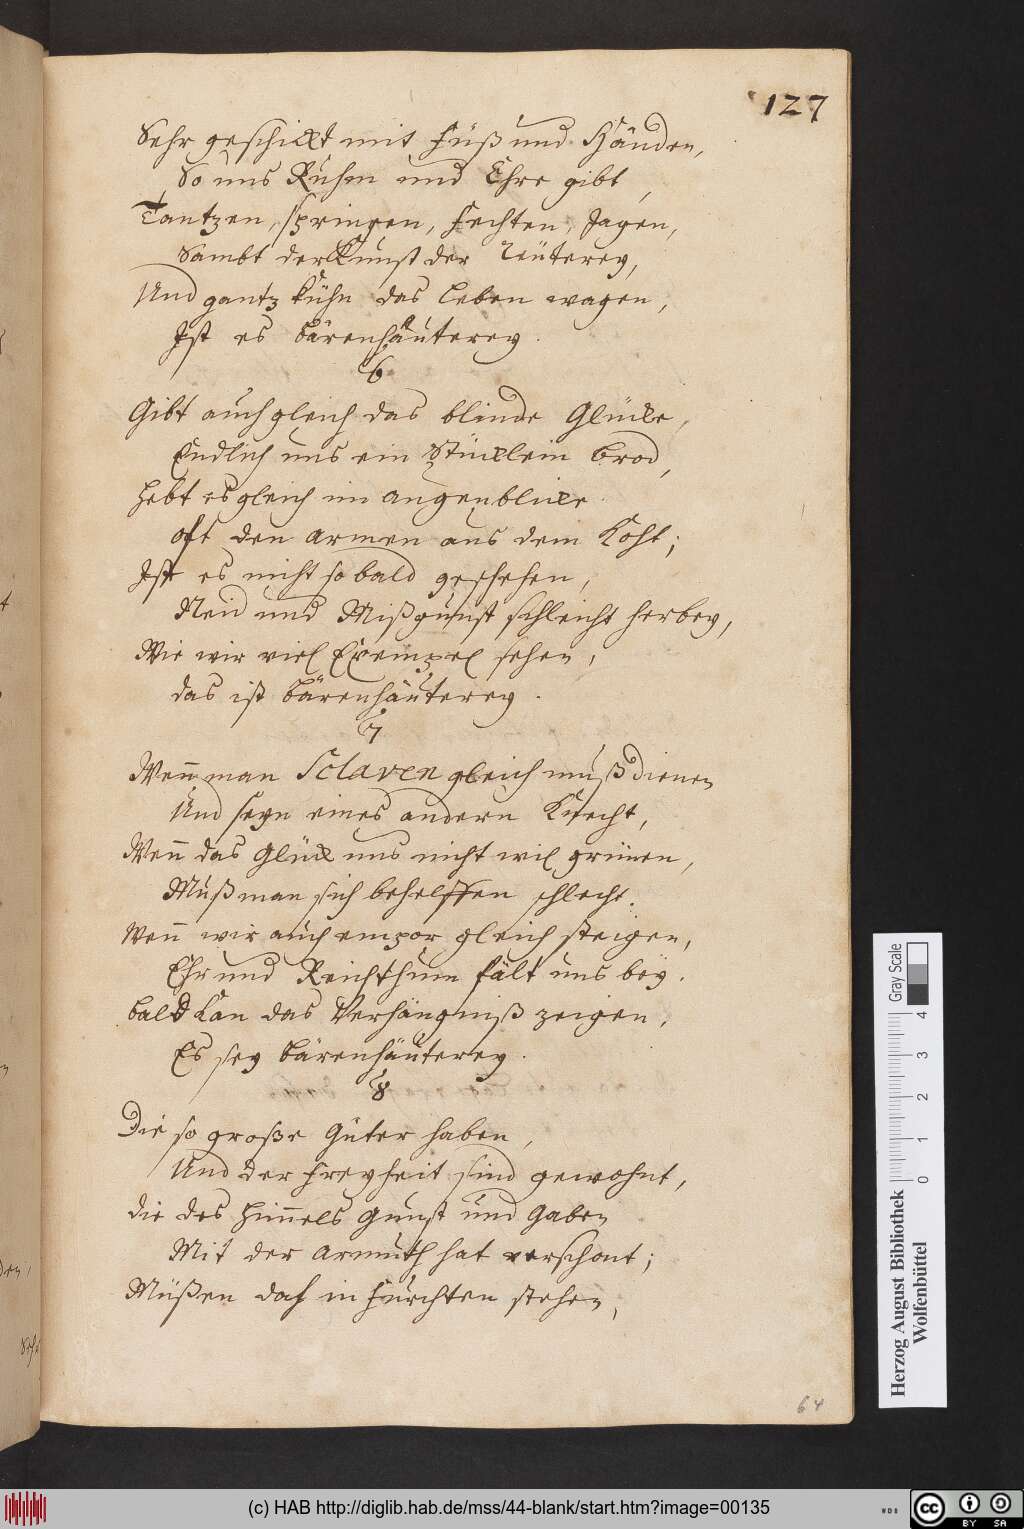 127
Sehr geschickt mit Füß und Händen,
So uns Ruhm und Ehre gibt,
Tantzen, springen, fechten, Jagen,
Sambt der Kunst der reüterey,
Und gantz kühn das leben wagen,
Ist es bärenhäuterey.
6
Gibt auch gleich das blinde Glücke,
Endlich uns ein Stücklein brod,
hebt es gleich im augenblicke
oft den armen aus dem Koht;
Ist es nicht so bald geschehen,
Neid und Mißgunst schleicht herbey,
Wie wir viel Exempel sehen,
das ist bärenhäuterey.
7
Wenn man Sclaven gleich muß dienen
Und seyn eines andern Knecht,
Wenn das Glück uns nicht wil grünen,
Muß man sich behelffen schlecht.
Wenn wir auch empor gleich steigen,
Ehr und Reichthum fält uns bey.
bald kan das Verhängniß zeigen,
Es sey bärenhäuterey.
8
Die so große Güter haben,
Und der freyheit sind gewohnt,
die des himmels gunst und gaben
Mit der armuth hat verschont;
Müßen doch in furchten stehen,
64
Herzog August Bibliothek
Wolfenbüttel
0 1 2 3 4
Gray Scale
(c) HAB http://diglib.hab.de/mss/44-blank/start.htm?image=00135
WDB
cc BY SA